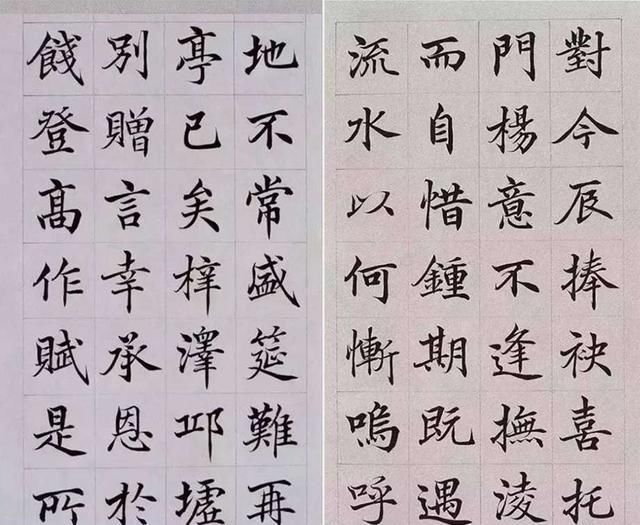 對今辰捧袂喜托
門楊意不逢撫淩
而自惜鍾期既遇
流水以何慚嗚呼
地不常盛筵難再
亭已矣梓澤邱墟
別贈言幸承恩於
餞登髙作賦是所